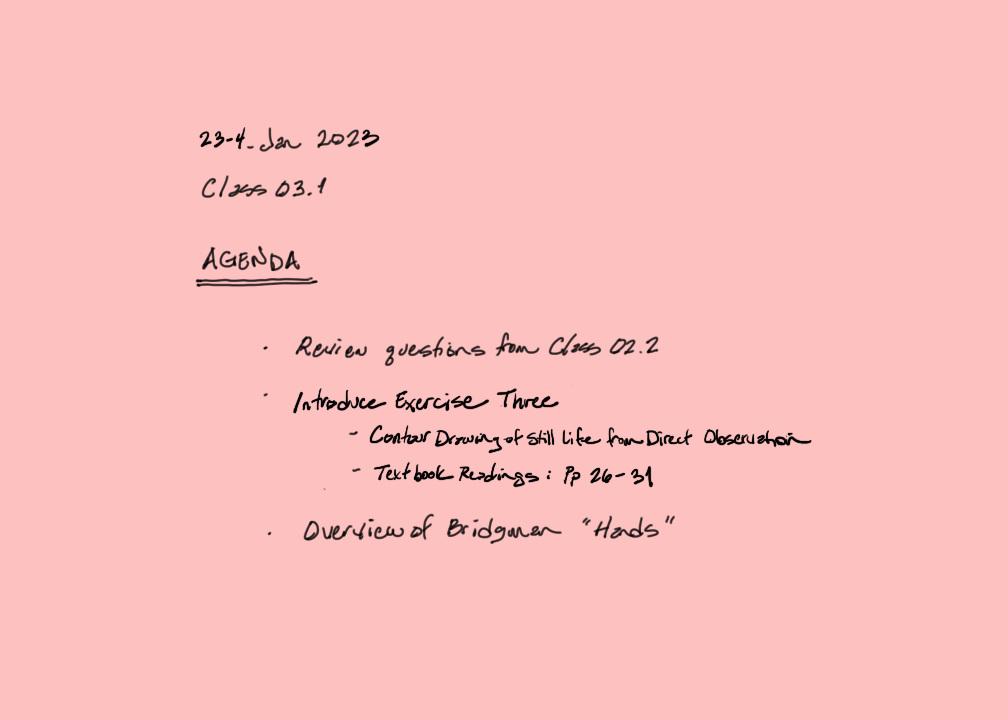 23-4-Jan 2023
Class 03.1
AGENDA
· Review questions from Class 02.2
· Introduce Exercise Three
- Contour Drawing of Still Life from Direct Observation
- Textbook Readings: Pp 26-31
· Overview of Bridgman "Hands"